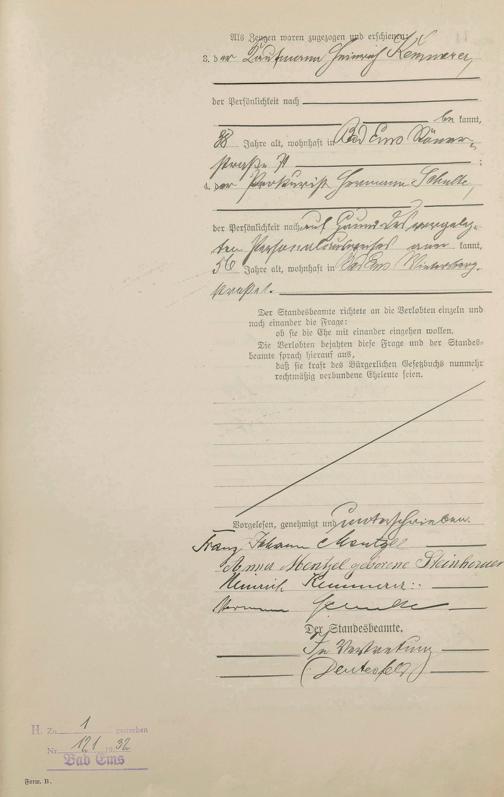 Als Zeugen waren zugezogen und erschienen:
3. der Kaufmann Heinrich Kemmerer,
der Persönlichkeit nach
be kannt,
38 Jahre alt, wohnhaft in Bad Ems Römer-
straße
4. der Prokurist Hermann Schulte,
der Persönlichkeit nach auf Grund des vorgeleg-
ten Personalausweises aner kannt,
56 Jahre alt, wohnhaft in Bad Ems Wintersberg-
straße
Der Standesbeamte richtete an die Verlobten einzeln und
nach einander die Frage:
ob sie die Ehe mit einander eingehen wollen.
Die Verlobten bejahten diese Frage und der Standes-
beamte sprach hierauf aus,
daß sie kraft des Bürgerlichen Gesetzbuchs nunmehr
rechtmäßig verbundene Eheleute seien.
Vorgelesen, genehmigt und unterschrieben.
Franz Johann Mentzel
Anna Mentzel geborene
Heinrich Kemmerer
Hermann Schulte
Der Standesbeamte.
In Vertretung
H. Zu 1
Nr. 121 1932
Bad Ems
Form. B.